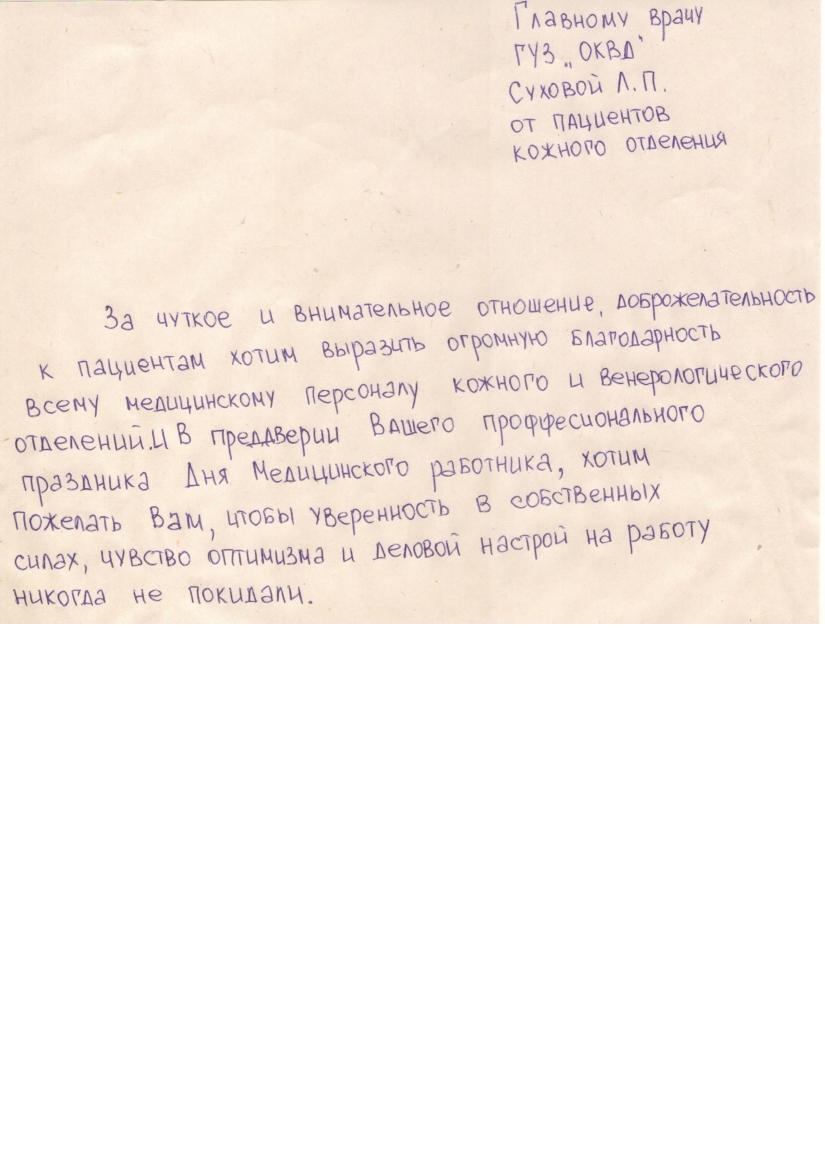 Главному врачу
ГУЗ „ОКВД"
Суховой Л.П.
от пациентов
кожного отделения
За чуткое и внимательное отношение, доброжелательность
к пациентам хотим выразить огромную благодарность
всему медицинскому персоналу кожного и венерологического
отделений.И В преддверии Вашего проффесионального
праздника Дня Медицинского работника, хотим
пожелать Вам, чтобы уверенность в собственных
силах, чувство оптимизма и деловой настрой на работу
никогда не покидали.